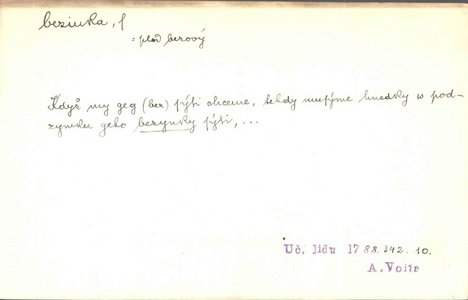 bezinka, f
= plod bezový
Když my geg (bez) sýti chceme, tehdy musýme hnedky w pod-
zymku geho bezynky sýti, ...
Uč. lidu 1788. 342. 10.
A. Voita